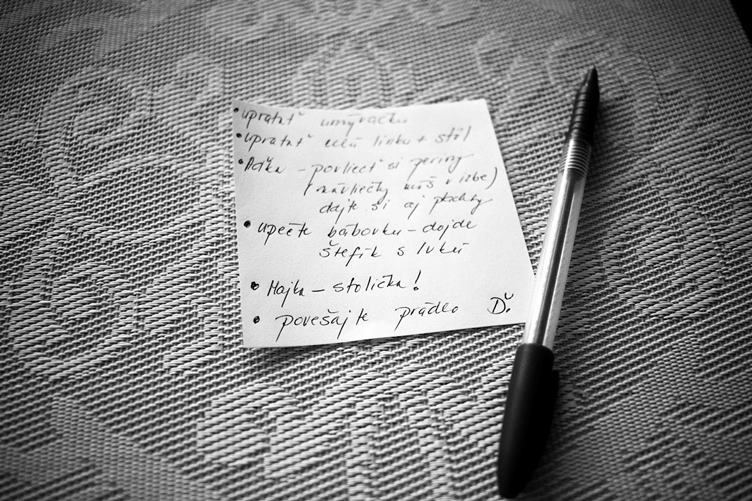 • upratať umývačku
• upratať celú linku + stôl
• - povliecť si periny
(návliečky máš v izbe)
dajte si aj plachty
• upečte bábovku - dojde
Štefik s Ivkú
• Majka - stolička!
• povešajte prádlo Ď.